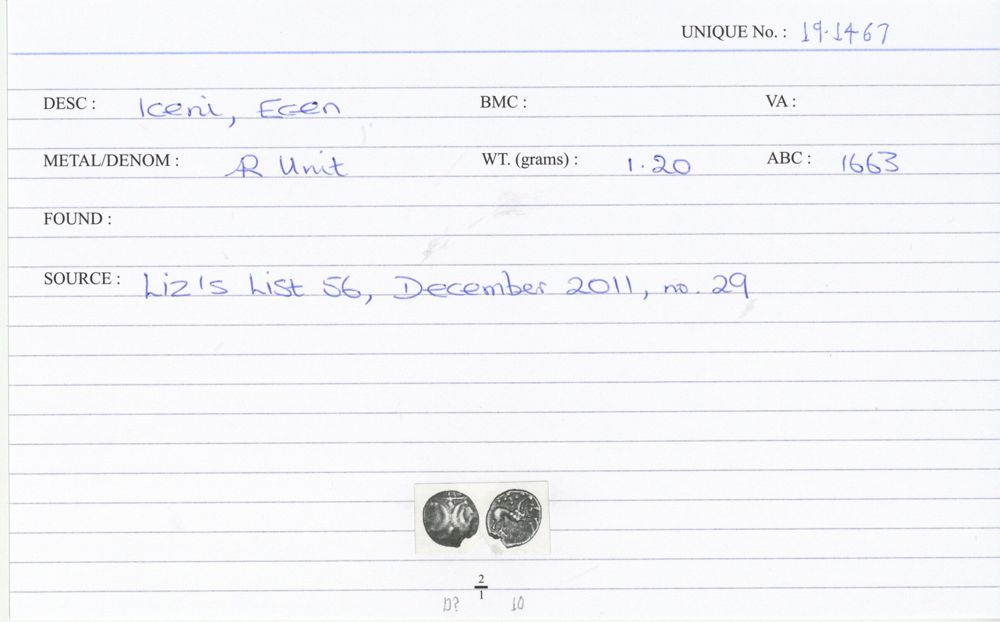 UNIQUE No. : 19.1467
DESC : Iceni, Ecen BMC : VA :
METAL/DENOM : AR Unit WT. (grams) : 1.20 ABC : 1663
FOUND :
SOURCE : Liz's List 56, December 2011, no. 29
2
1
D? 10